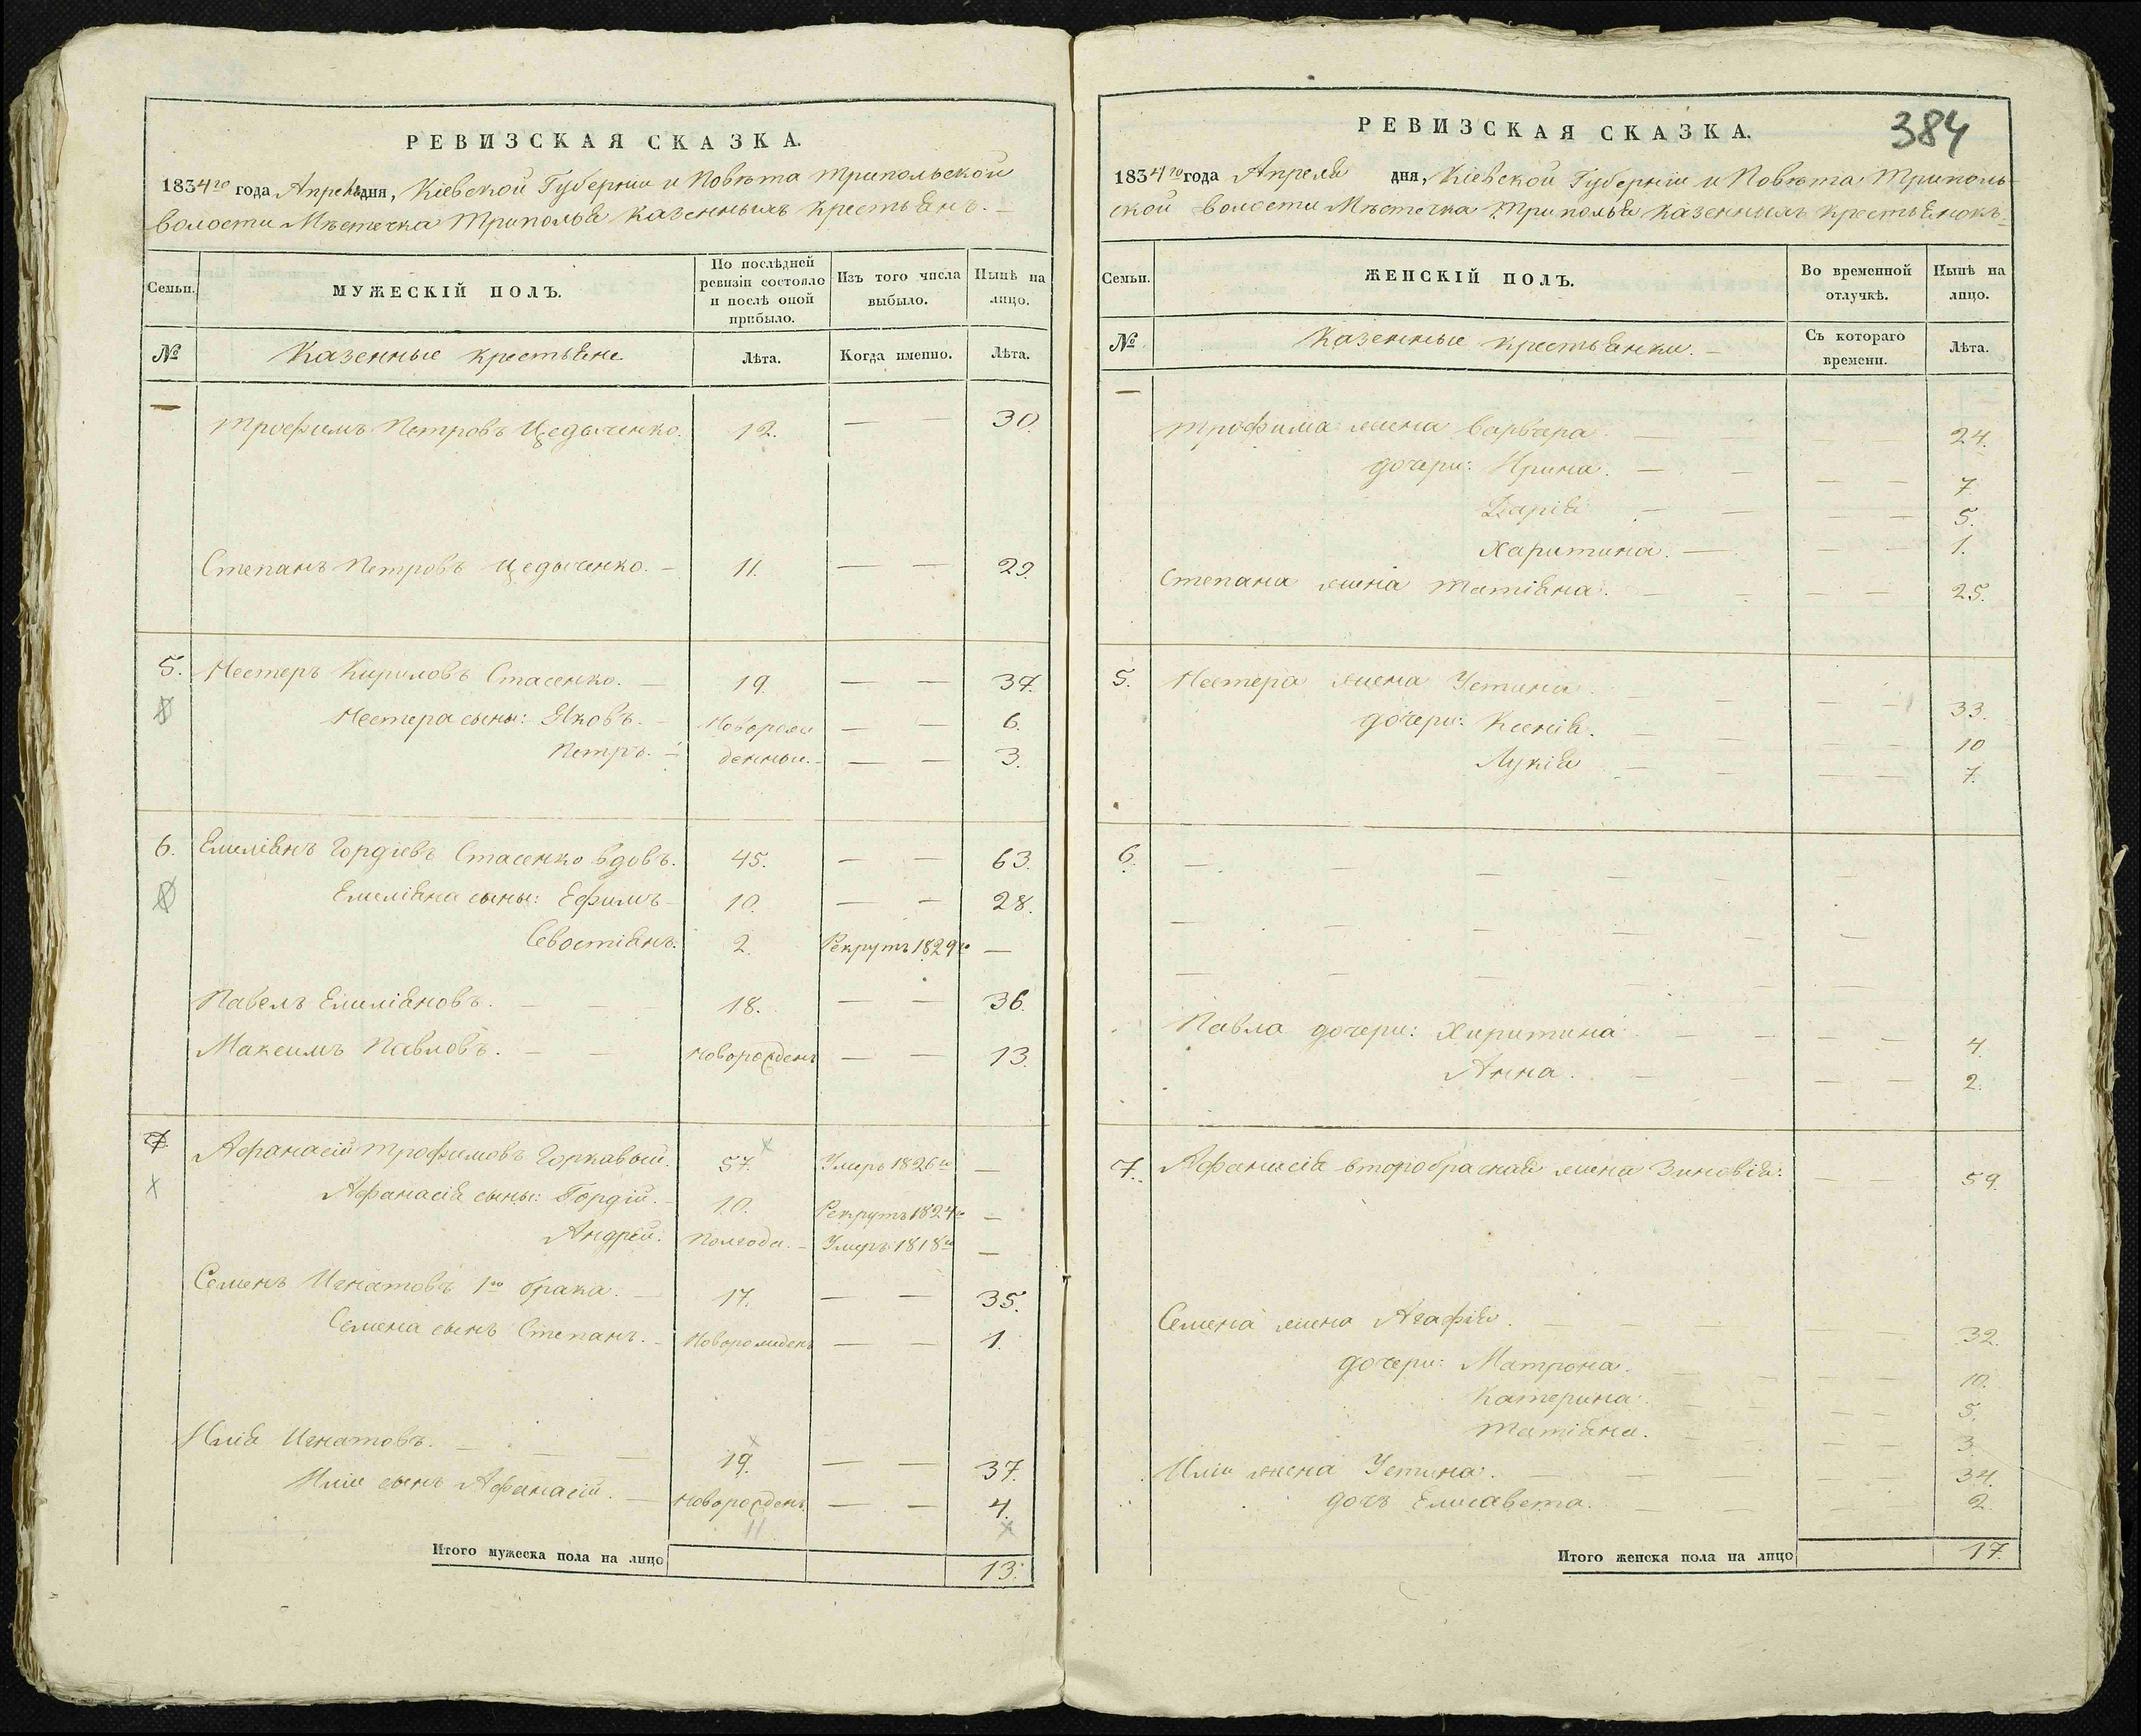 РЕВИЗСКАЯ СКАЗКА.
1834го года Апреля дня, Кіевской Губерніи и Повѣта Трипольской
волости Мѣстечка Триполья казенныхъ крестьянъ. —
Семьи.
МУЖЕСКІЙ ПОЛЪ.
По послѣдней ревизіи состояло и послѣ оной прибыло.
Изъ того числа выбыло.
Нынѣ на лицо.
№
Казенные крестьяне
Лѣта.
Когда именно.
Лѣта.
— Трофимъ Петровъ 12. — — 30.
Степанъ Петровъ — 11. — — 29.
5. Нестеръ Кириловъ Стасенко. — 19. — — 37.
Нестера сыны: Яковъ. — Новорож — — 6.
Петръ. — денныи. — — — 3.
6. Емеліянъ Гордіевъ Стасенко вдовъ. 45. — — 63.
Емеліяна сыны: Ефимъ — 10. — — 28.
Севостіянъ. 2. Рекрутъ 1829го —
Павелъ Емеліяновъ. — — 18. — — 36.
Максимъ Павловъ. — — новорожденъ — — 13.
7. Афанасій Трофимовъ Горкавый. 57. Умеръ 1826го —
Афанасія сыны: Гордій. — 10. Рекрутъ 1824го —
Андрей. Полгода. — Умеръ 1818го —
Семенъ Игнатовъ 1го брака. — 17. — — 35.
Семена сынъ Степанъ. — Новорожденъ — — 1.
Илія Игнатовъ. — — — 19. — — 37.
Иліи сынъ Афанасій. — новорожденъ — — 4.
11
Итого мужеска пола на лицо 13.
384
РЕВИЗСКАЯ СКАЗКА.
1834го года Апреля дня, Кіевской Губерніи и Повѣта Триполь-
ской волости Мѣстечка Триполья казенныхъ крестьянокъ.
Семьи.
ЖЕНСКІЙ ПОЛЪ.
Во временной отлучкѣ.
Нынѣ на лицо.
№
Казенные крестьянки. —
Съ котораго времени.
Лѣта.
— Трофима жена Варвара. — — — — 24.
дочери: Ирина. — — — — 7.
Дарія — — — — 5.
Харитина. — — — 1.
Степана жена Татіяна. — — — — 25.
5. Нестера жена Устина. — — — — 33.
дочери: Ксенія. — — — — 10
Лукія — — — — 7.
6. — — — — — —
— — — — — —
— — — — — —
Павла дочери: Харитина — — — — 4.
Анна. — — — — 2.
7. Афанасія второбрачная жена Зиновія: — — 59.
Семена жена Агафія. — — — — — 32.
дочери: Матрона. — — — — 10.
Катерина. — — — — 5.
Татіяна. — — — — 3
Иліи жена Устина. — — — — 34.
дочъ Елисавета. — — — 2.
Итого женска пола на лицо 17.